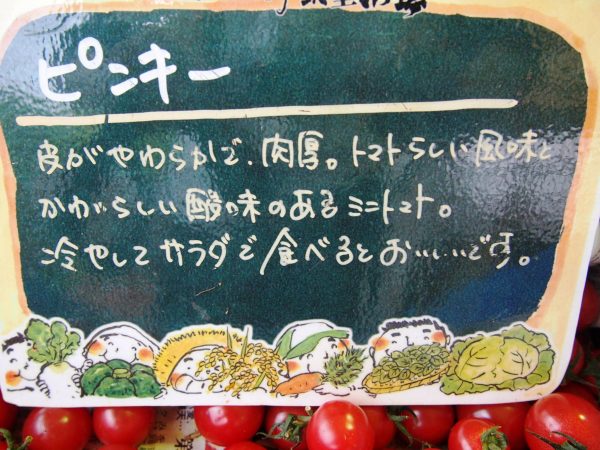 ピンキー
皮がやわらかで、肉厚。トマトらしい風味と
かわいらしい酸味のあるミニトマト。
冷やしてサラダで食べるとおいしいです。